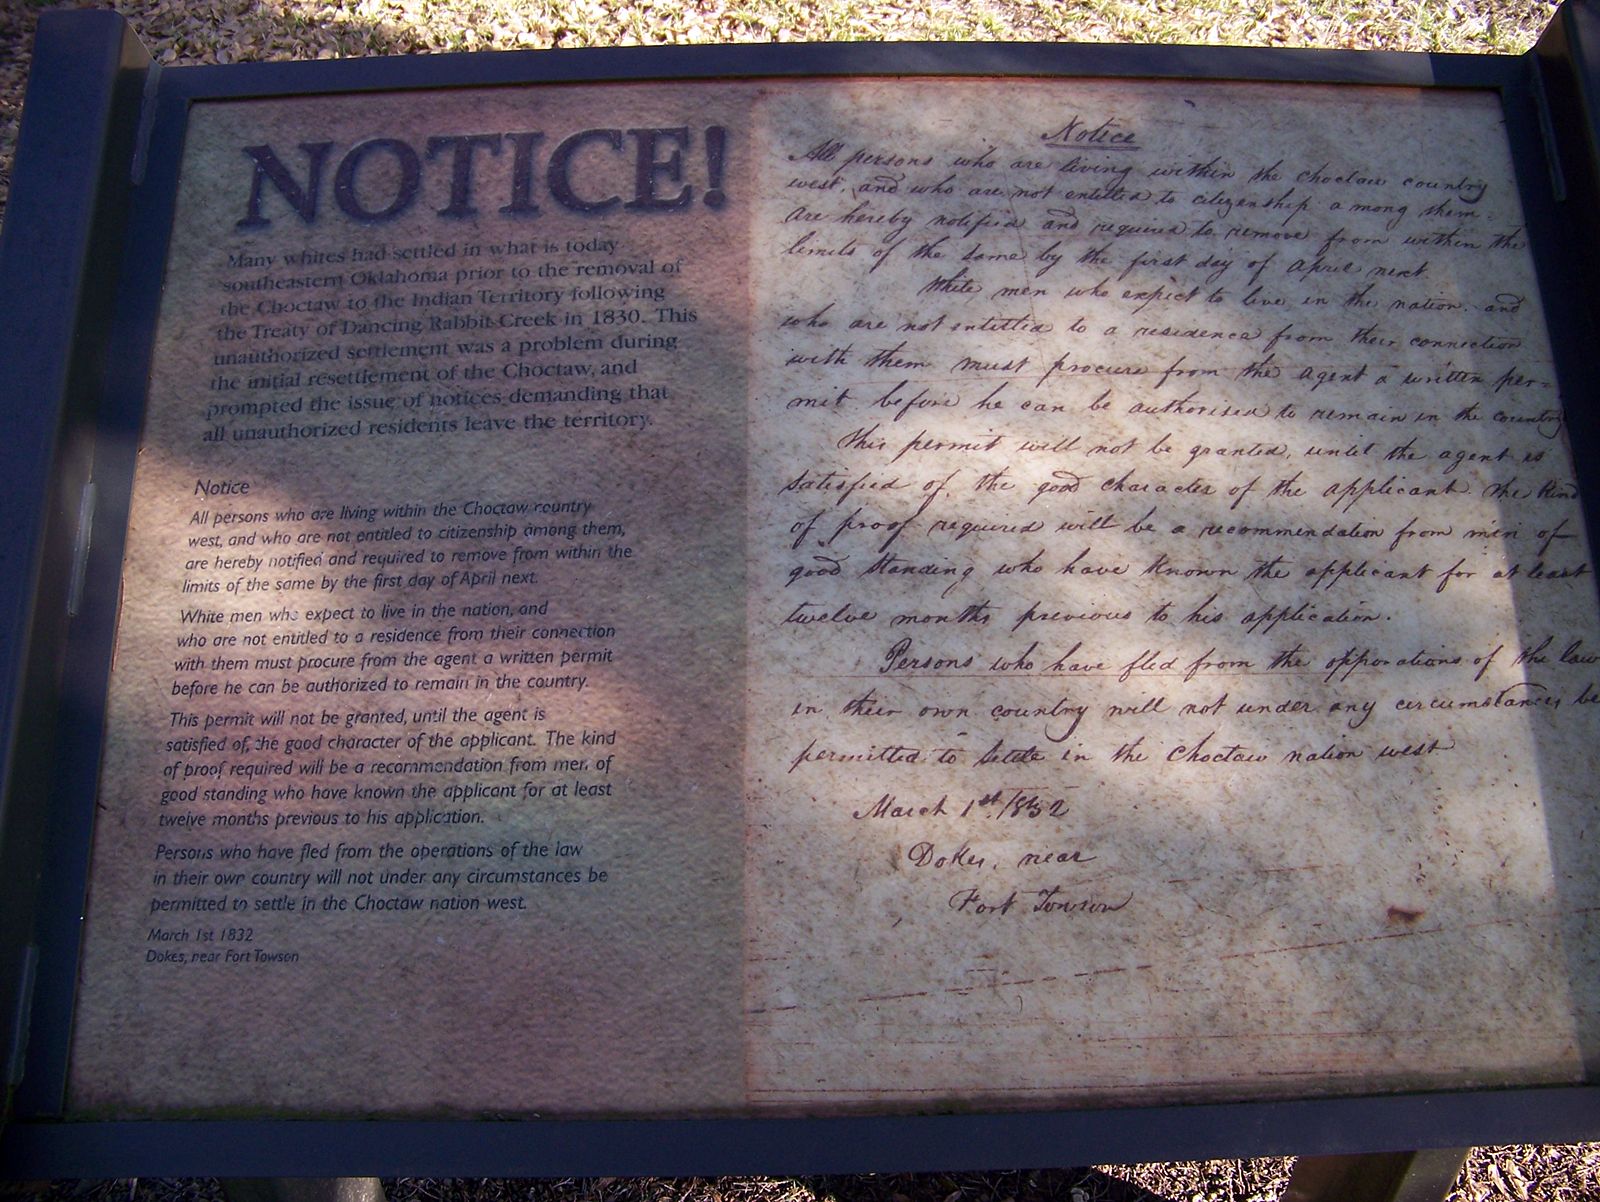 NOTICE!
Many whites had settled in what is today
southeastern Oklahoma prior to the removal of
the Choctaw to the Indian Territory following
the Treaty of Dancing Rabbit Creek in 1830. This
unauthorized settlement was a problem during
the initial resettlement of the Choctaw, and
prompted the issue of notices demanding that
all unauthorized residents leave the territory.
Notice
All persons who are living within the Choctaw country
west, and who are not entitled to citizenship among them,
are hereby notified and required to remove from within the
limits of the same by the first day of April next.
White men who expect to live in the nation, and
who are not entitled to a residence from their connection
with them must procure from the agent a written permit
before he can be authorized to remain in the country.
This permit will not be granted, until the agent is
satisfied of, the good character of the applicant. The kind
of proof required will be a recommendation from men of
good standing who have known the applicant for at least
twelve months previous to his application.
Persons who have fled from the operations of the law
in their own country will not under any circumstances be
permitted to settle in the Choctaw nation west.
March 1st 1832
Dokes, near Fort Towson
Notice
All persons who are living within the Choctaw country
west, and who are not entitled to citizenship among them=
are hereby notified and required to remove from within the
limits of the same by the first day of April next
White men who expect to live in the nation, and
who are not entitled to a residence from their connection
with them must procure from the agent a written per=
mit before he can be authorised to remain in the country
This permit will not be granted, until the agent is
satisfied of, the good character of the applicant. the kind
of proof required will be a recommendation from men of
good standing who have known the applicant for at least
twelve months previous to his application.
Persons who have fled from the opporations of the law
in their own country will not under any circumstances be
permitted to settle in the Choctaw nation west
March 1st. 1832
Dokes, near
Fort Towson